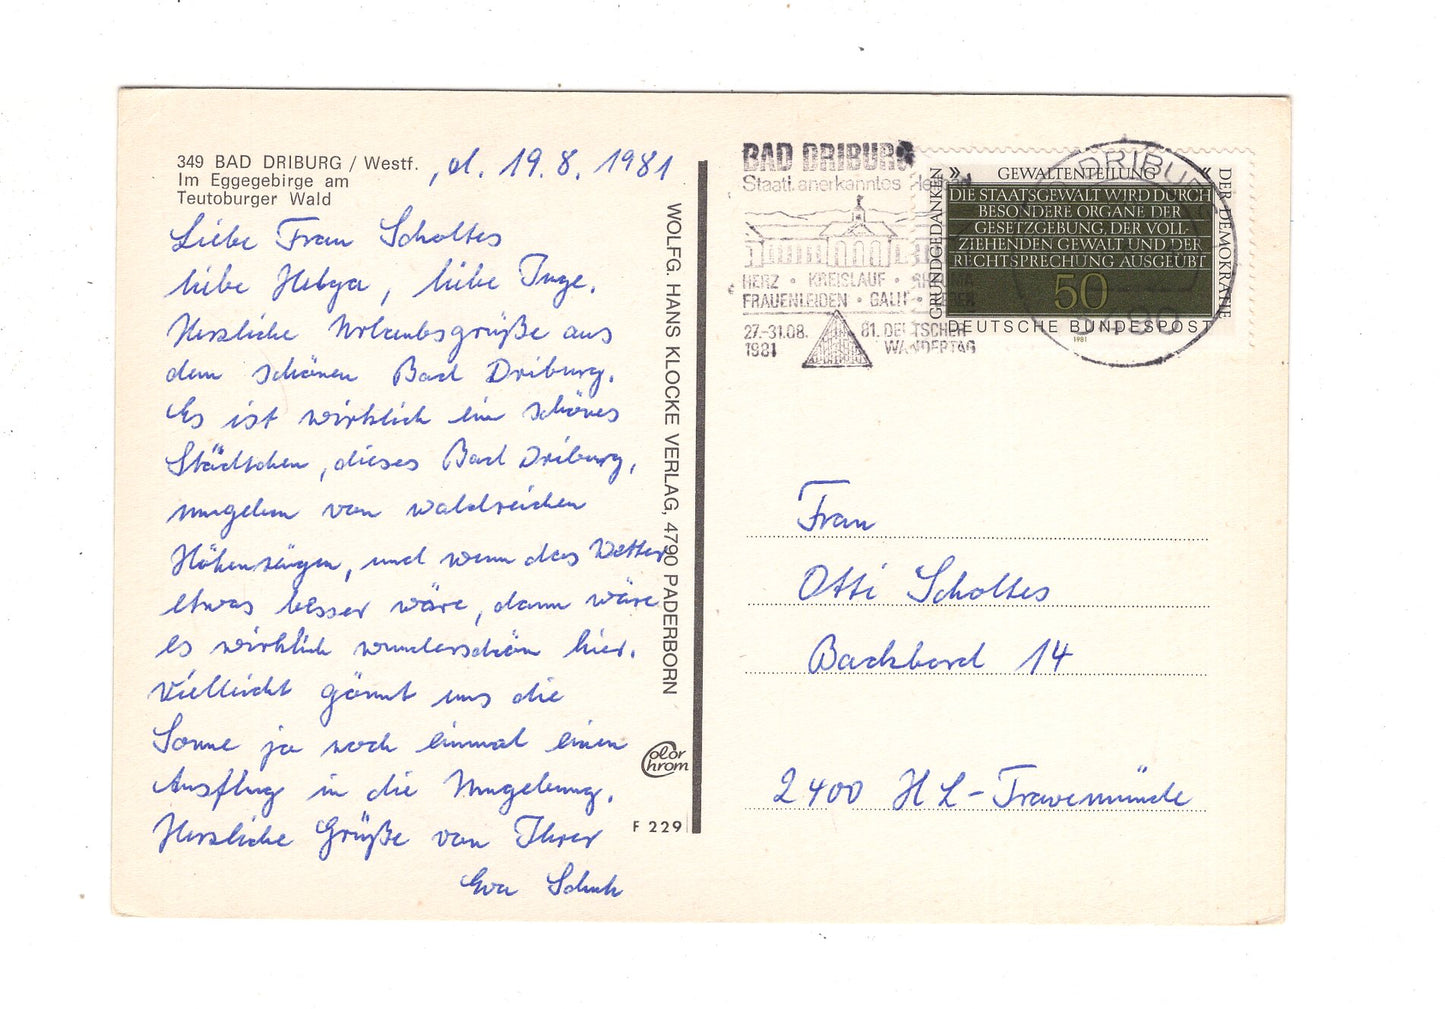 349 BAD DRIBURG / Westf.
Im Eggegebirge am
Teutoburger Wald
, d. 19.8.1981
Liebe Frau Scholtes
liebe Helga, liebe Inge.
Herzliche Urlaubsgrüße aus
dem schönen Bad Driburg.
Es ist wirklich ein schönes
Städtchen, dieses Bad Driburg,
umgeben von waldreichen
Höhenzügen, und wenn das Wetter
etwas besser wäre, dann wäre
es wirklich wunderschön hier.
Vielleicht gönnt uns die
Sonne ja noch einmal einen
Ausflug in die Umgebung.
Herzliche Grüße von Ihrer
Eva Schuh
WOLFG. HANS KLOCKE VERLAG, 4790 PADERBORN
Color
Chrom
F 229
BAD DRIBURG
Staatl. anerkanntes
HERZ · KREISLAUF · RHEUMA
FRAUENLEIDEN · GALLE · LEBER
27.-31.08.
1981
81. DEUTSCHER
WANDERTAG
DRIBURG
3490
GRUNDGEDANKEN
DER DEMOKRATIE
» GEWALTENTEILUNG «
DIE STAATSGEWALT WIRD DURCH
BESONDERE ORGANE DER
GESETZGEBUNG, DER VOLL-
ZIEHENDEN GEWALT UND DER
RECHTSPRECHUNG AUSGEÜBT
50
DEUTSCHE BUNDESPOST
1981
Frau
Otti Scholtes
Backbord 14
2400 HL-Travemünde